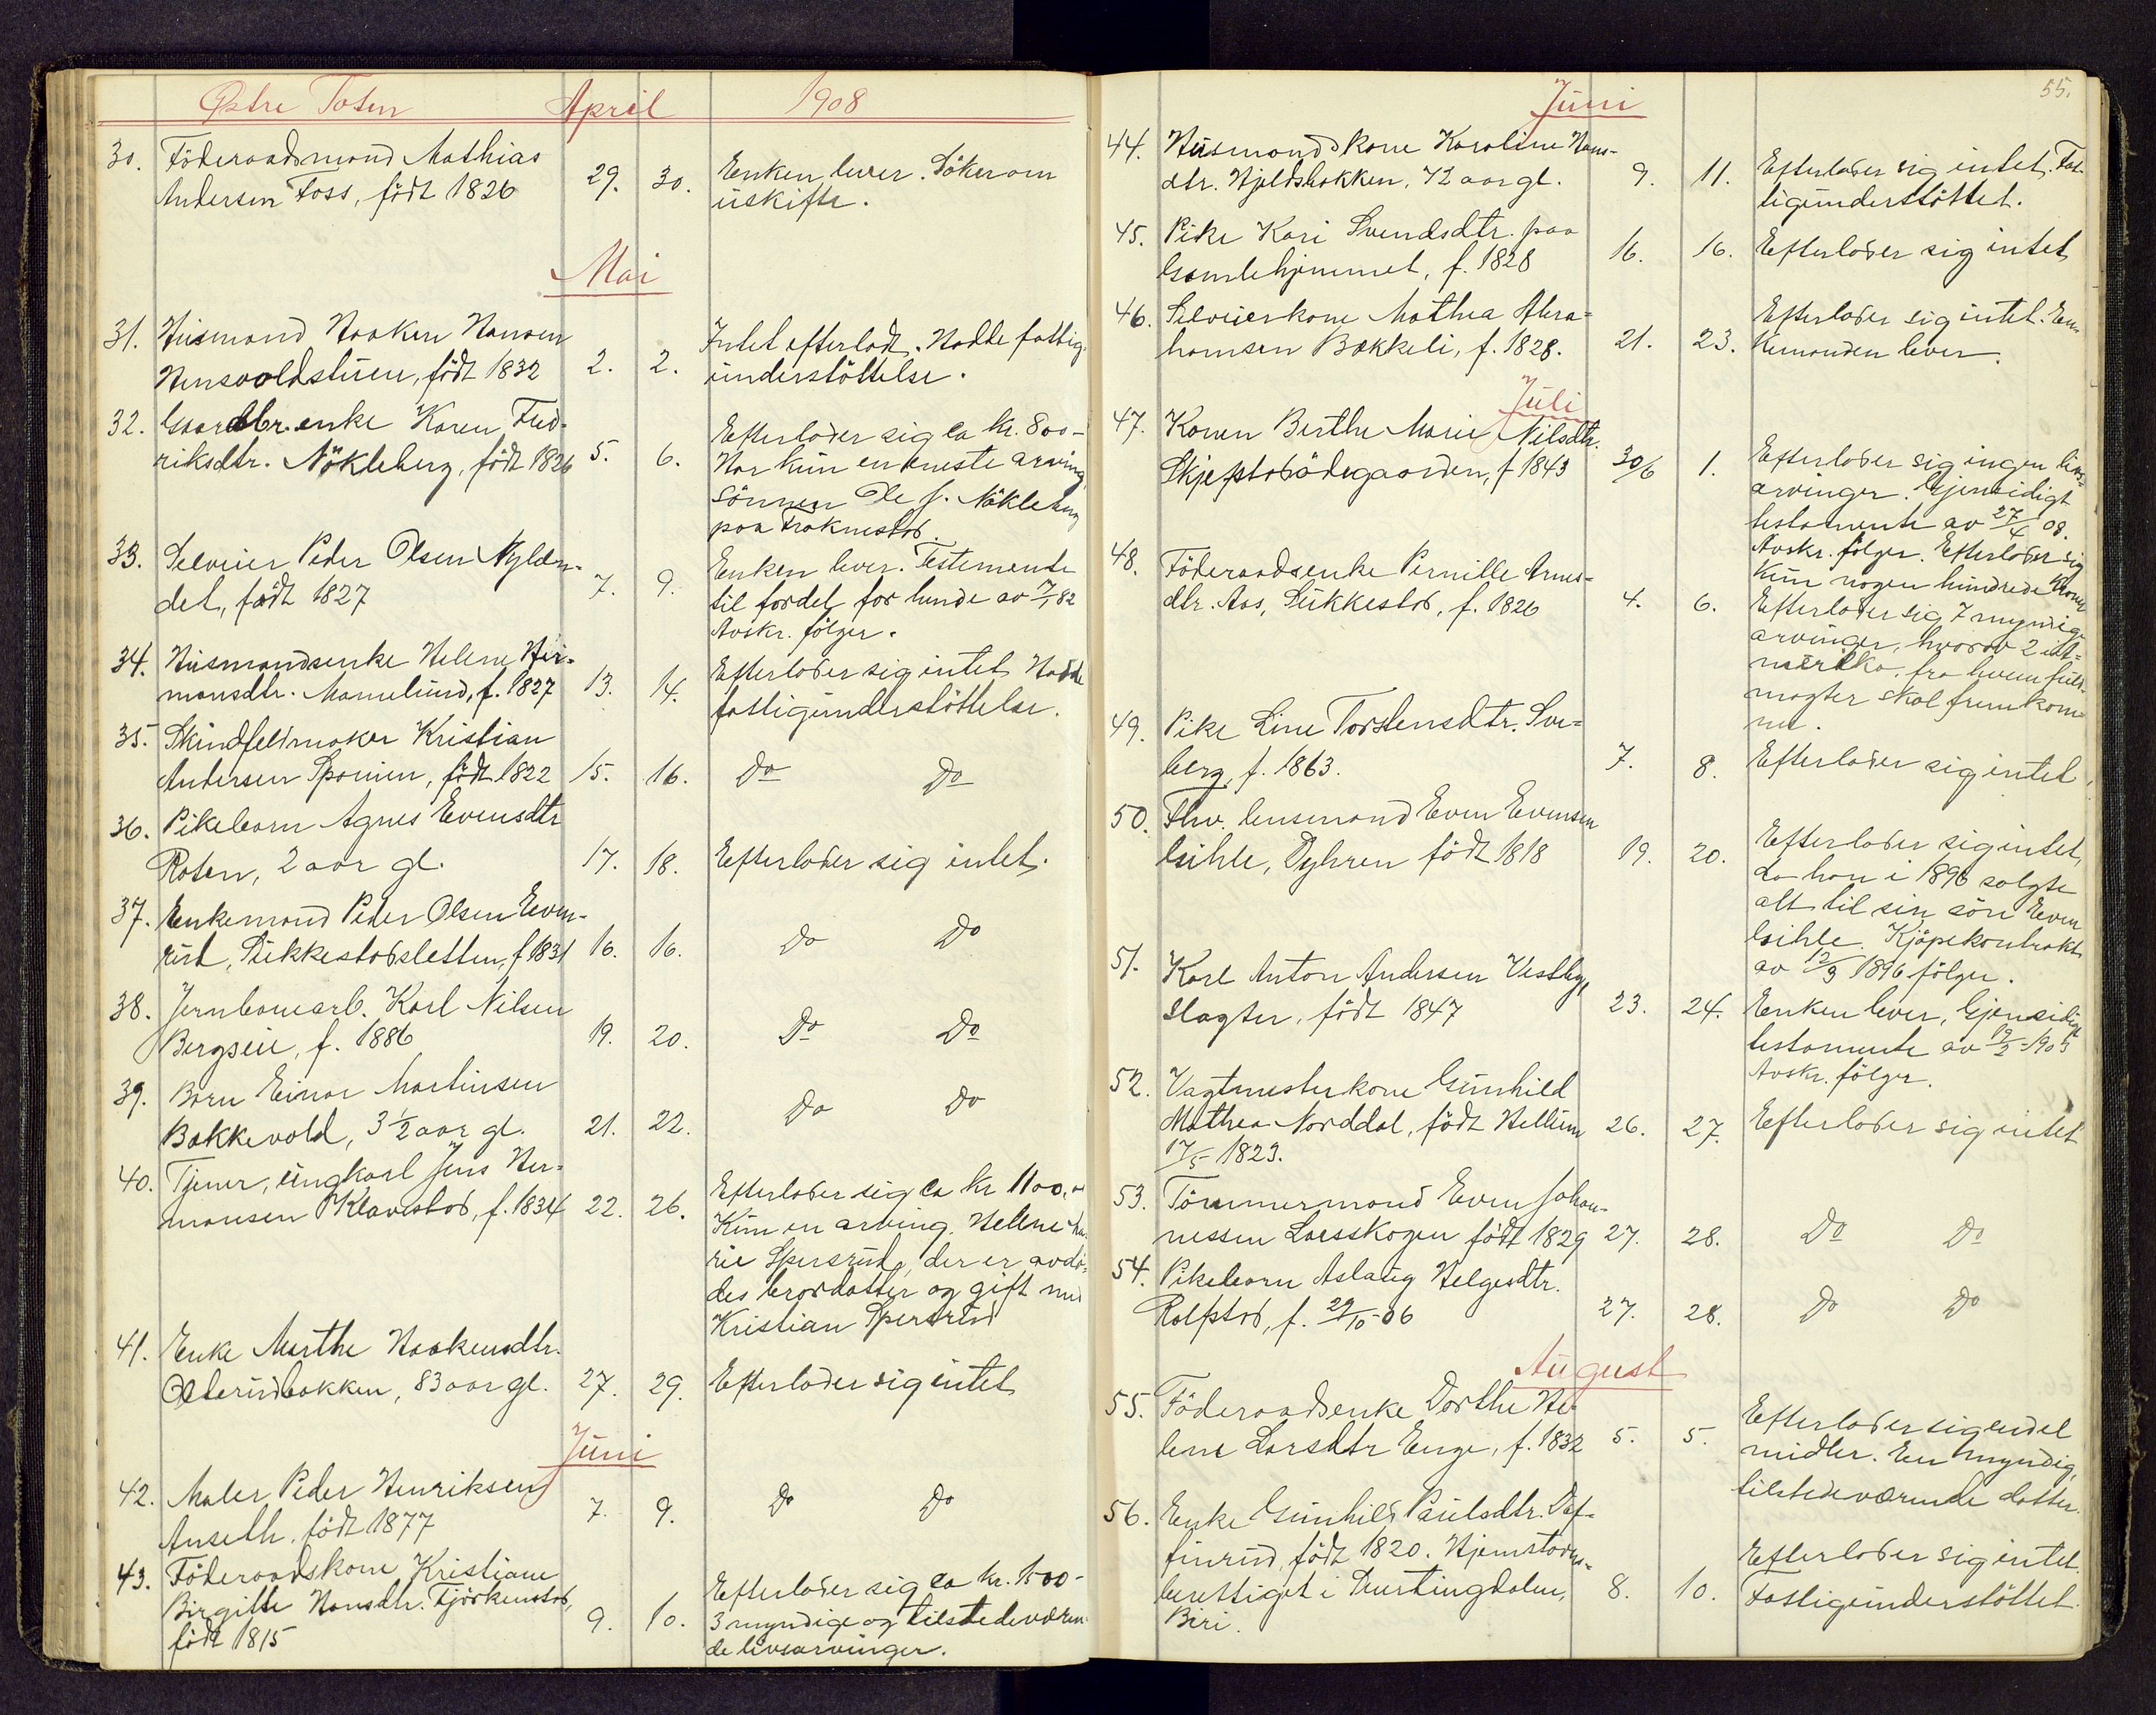 Østre Toten April 1908
30. Föderaadsmand Mathias
Andersen Foss, född 1826 29. 30. Enken lever. Söker om
uskifte.
Mai
31. Husmand Haaken Hansen
Hensvoldstuen, född 1832 2. 2. Intet efterladt. Hadde fattig-
understöttelse.
32. Gaardbr. enke Karen Fred-
riksdtr. Nökleberg, född 1826 5. 6. Efterlader sig ca kr. 800-
Har kun en eneste arving,
sönnen Ole J. Nökleberg
paa Fraknestad.
33. Selveier Peder Olsen Nylæn-
det, född 1827 7. 9. Enken lever. Testemente
til fordel for hende av 7/1 82
Avskr. fölger.
34. Husmandsenke Helene Her-
mansdtr. Mamelund, f. 1827 13. 14. Efterlader sig intet. Hadde
fattigunderstöttelse.
35. Skindfeldmaker Kristian
Andersen Spanien, född 1822 15. 16. Do Do
36. Pikebarn Agnes Evensdtr
Roten, 2 aar gl. 17. 18. Efterlader sig intet.
37. Enkemand Peder Olsen Even-
rud, Sukkestadsletten, f 1831 16. 16. Do Do
38. Jernbanearb. Karl Nilsen
Bergseie, f. 1886 19. 20. Do Do
39. Barn Einar Martinsen
Bakkevold, 3 1/2 aar gl. 21. 22. Do Do
40. Tjener, ungkarl Jens Her-
mansen Klavestad, f. 1834 22. 26. Efterlader sig ca kr 1100,
Kun en arving, Helene Ma-
rie Spersrud, der er avdö-
des brordatter og gift med
Kristian Spersrud
41. Enke Marthe Haakensdtr.
Ølterudbakken, 83 aar gl. 27. 29. Efterlader sig intet
Juni
42. Maler Peder Henriksen
Anseth, född 1877 7. 9. Do Do
43. Föderaadskone Kristiane
Birgitte Hansdtr. Tjörkenstad,
född 1815 9. 10. Efterlader sig ca kr. 1500-
3 myndige og tilstedeværen-
de livsarvinger.
55.
Juni
44. Husmandskone Karoline Hans-
dtr. Hjeldsbakken, 72 aar gl. 9. 11. Efterlader sig intet. Fat-
tigunderstöttet.
45. Pike Kari Svendsdtr. paa
Gamlehjemmet, f. 1828 16. 16. Efterlader sig intet
46. Selveierkone Mathea Abra-
hamsen Bakkeli, f. 1828. 21. 23. Efterlader sig intet. En-
kemanden lever.
Juli
47. Konen Berthe Marie Nilsdtr.
Skjeptadödegaarden, f 1843 30/6 1. Efterlader sig ingen livs-
arvinger. Gjensidigt
testamente av 27/4 08.
Avskr. fölger. Efterlader sig
kun nogen hundrede kroner
48. Föderaadsenke Pernille Arnes-
dtr. Aas, Sukkestad, f. 1826 4. 6. Efterlader sig 7 myndige
arvinger, hvorav 2 i A-
merika, fra hvem fuld-
magter skal fremkom-
me.
49. Pike Line Torstensdtr. Sve-
berg, f. 1863. 7. 8. Efterlader sig intet,
50. Fhv. lensmand Even Evensen
Gihle, Dyhren född 1818 19. 20. Efterlader sig intet,
da han i 1896 solgte
alt til sin sön Even
Gihle. Kjöpekontrakt
av 12/9 1896 fölger.
51. Karl Anton Andersen Vestby,
slagter, född 1847 23. 24. Enken lever, Gjensidigt
testamente av 19/2 1903
Avskr. fölger.
52. Vagtmesterkone Gunhild
Mathea Norddal, född Hellum
17/5 1823. 26. 27. Efterlader sig intet
53. Tömmermand Even Johan-
nessen Laesskogen född 1829 27. 28. Do Do
54. Pikebarn Aslaug Helgesdtr.
Rolfstad, f. 29/10-06 27. 28. Do Do
August
55. Föderaadsenke Dorthe He-
lene Larsdtr Enge, f. 1832 5. 5. Efterlader sig endel
midler. En myndig,
tilstedeværende datter.
56. Enke Gunhild Paulsdtr. Daf-
finrud, född 1820. Hjemstavns-
berettiget i Snertingdalen,
Biri. 8. 10. Efterlader sig intet.
Fattigunderstöttet.